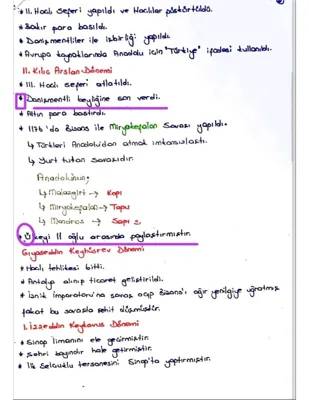 * II. Haçlı Seferi yapıldı ve Haçlılar püskürtüldü.
* Bakır para basıldı.
* Danişmentliler ile işbirliği yapıldı.
* Avrupa kaynaklarında Anadolu için "Türkiye" ifadesi kullanıldı.
II. Kılıç Arslan Dönemi
* III. Haçlı seferi atlatıldı.
* Danişmentli beyliğine son verdi.
* Altın para bastırdı.
* 1176'da Bizans ile Miryokefalon Savaşı yapıldı.
↳ Türkleri Anadolu'dan atmak imkansızlaştı.
↳ Yurt tutan savaşıdır.
Anadolunun;
↳ Malazgirt → Kapı
↳ Miryokefalon → Tapu
↳ Mondros → Sapı
* Ülkeyi 11 oğlu arasında paylaştırmıştır.
Gıyaseddin Keyhüsrev Dönemi
* Haçlı tehlikesi bitti.
* Antalya alınıp ticaret geliştirildi.
* İznik İmparatoru'na savaş açıp Bizans'ı ağır yenilgiye uğratmış
fakat bu savaşta şehit düşmüştür.
I. İzzeddin Keykavus Dönemi
* Sinop limanını ele geçirmiştir.
* Şehri bayındır hale getirmiştir.
* İlk Selçuklu tersanesini Sinop'ta yaptırmıştır.